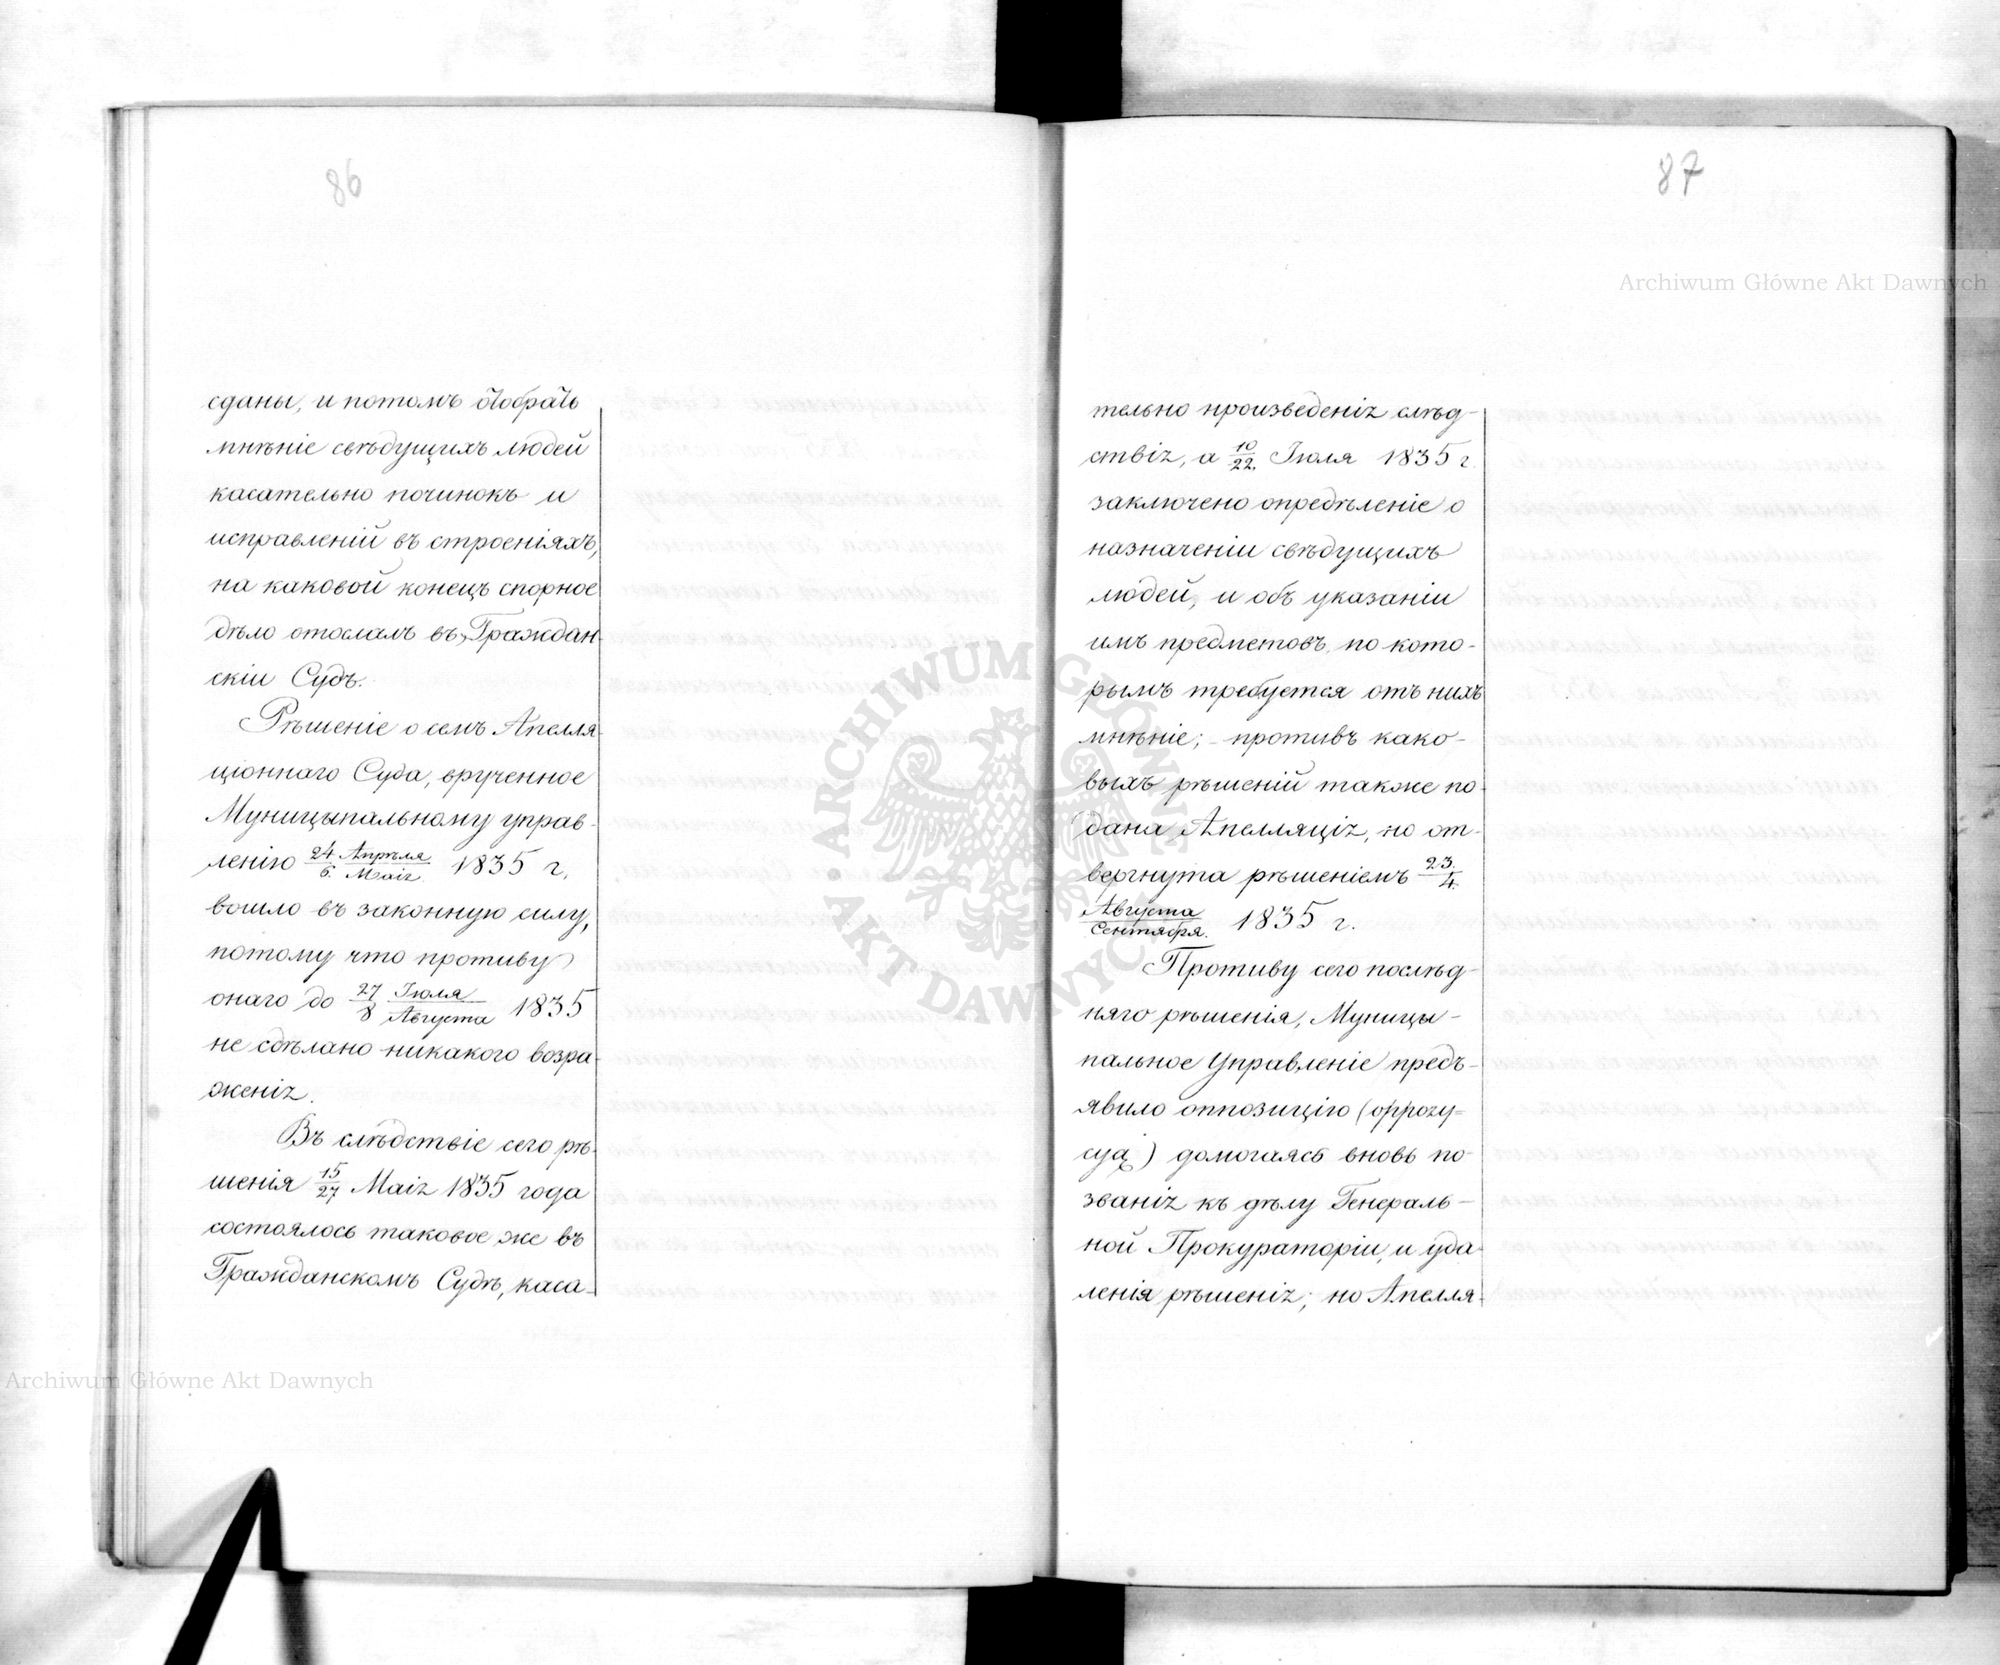 86
сданы, и потомъ отобрать
мнѣніе свѣдущихъ людей
касательно починокъ и
исправленій въ строеніяхъ,
на каковой конецъ спорное
дѣло отослалъ въ Граждан-
скіи Судъ.
Рѣшеніе о семъ Апелля-
ціоннаго Суда, врученное
Муницыпальному управ-
ленію 24/6. Апрѣля/Маія 1835 г.
вошло въ законную силу,
потому что противу
онаго до 27/8 Іюля/Августа 1835
не сдѣлано никакого возра-
женія.
Въ слѣдствіе сего рѣ-
шенія 15/27 Маія 1835 года
состоялось таковое же въ
Гражданскомъ Судѣ, каса-
87
тельно произведенія слѣд-
ствія, а 10/22. Іюля 1835 г.
заключено опредѣленіе о
назначеніи свѣдущихъ
людей, и объ указаніи
имъ предметовъ, по кото-
рымъ требуется отъ нихъ
мнѣніе; противъ како-
выхъ рѣшеній также по-
дана Апелляція, но от-
вергнута рѣшеніемъ 23./4.
Августа/Сентября. 1835 г.
Противу сего послѣд-
няго рѣшенія, Муницы-
пальное Управленіе предъ-
явило оппозицію (oppozy=
cyą) домогаясь вновь по-
званія къ дѣлу Генераль-
ной Прокураторіи, и уда-
ленія рѣшенія; но Апелля-
Archiwum Główne Akt Dawnych
Archiwum Główne Akt Dawnych
ARCHIWUM GŁÓWNE • AKT DAWNYCH •